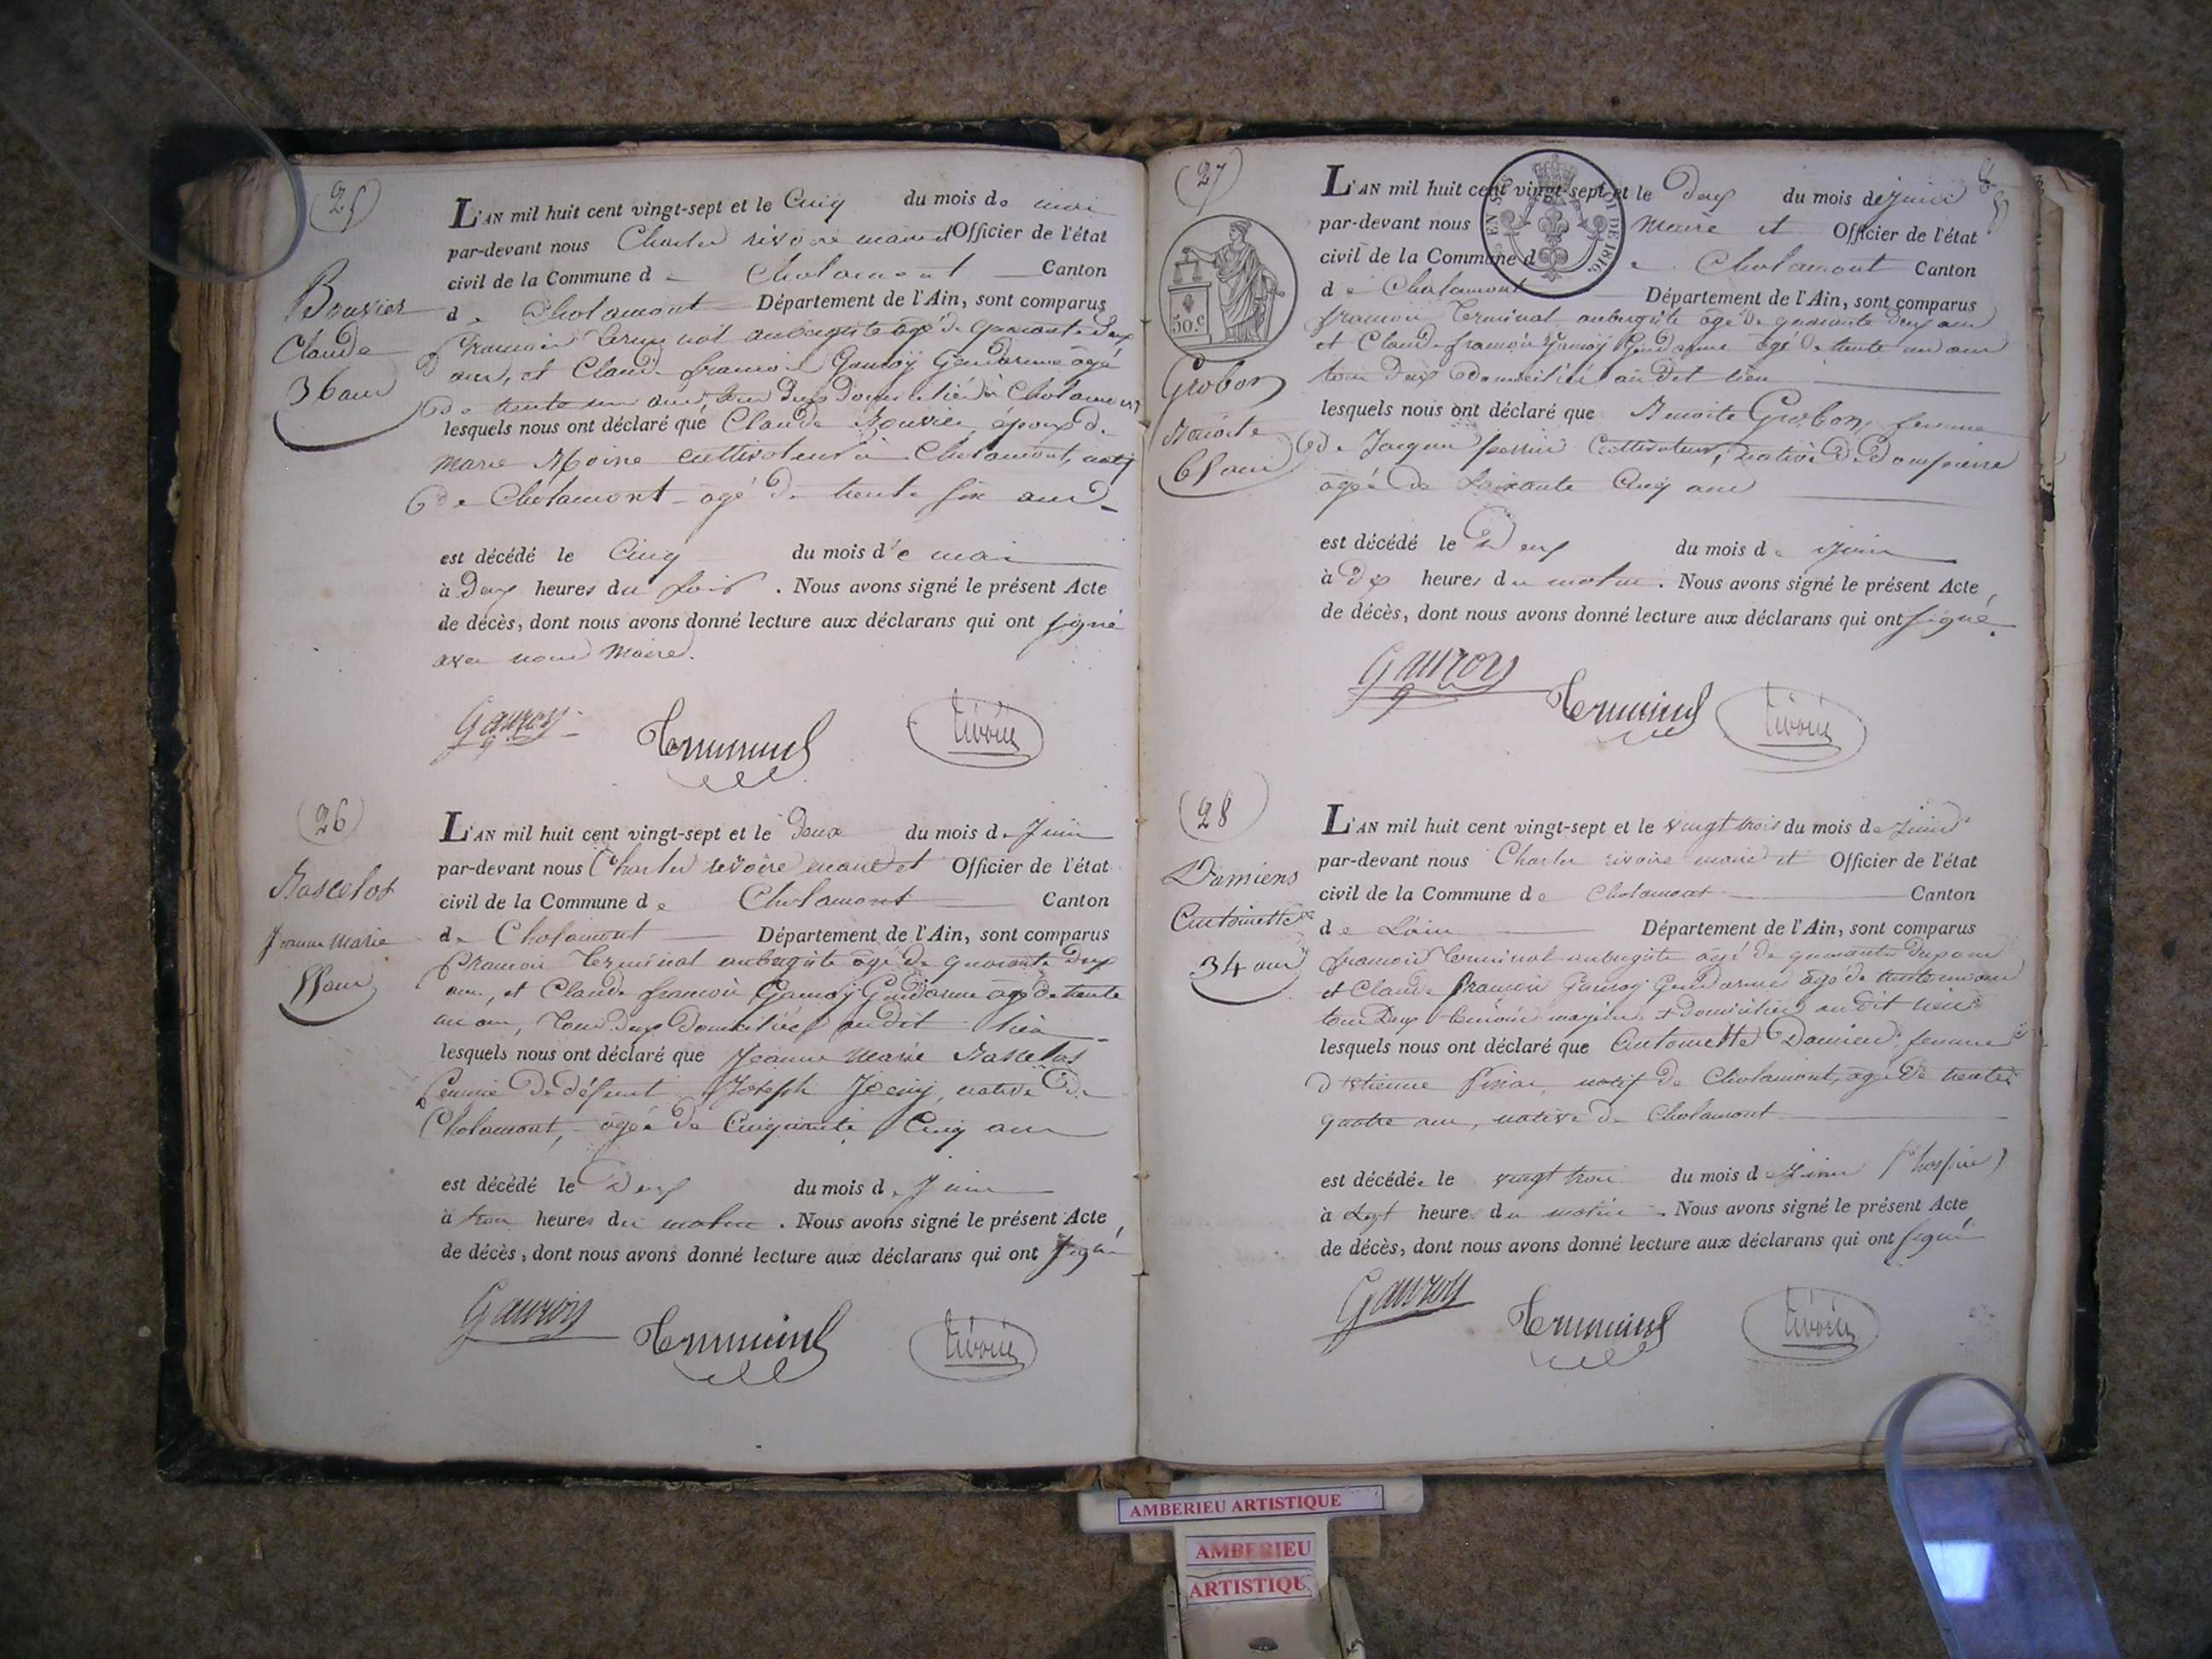 (25)
Bouvier
Claude
36 ans
L'AN mil huit cent vingt-sept et le Cinq du mois de mai
par-devant nous Charles rivoire maire et Officier de l'état
civil de la Commune d Chalamont Canton
de Chalamont Département de l'Ain, sont comparus
François Terminal aubergiste agé de quarante deux
ans, et Claude françois Gauroy Gendarme agé
de trente un ans, tous deux domiciliés à Chalamont
lesquels nous ont déclaré que Claude Bouvier, époux de
marie Moine cultivateur à Chalamont, natif
de Chalamont agé de trente six ans
est décédé le Cinq du mois de mai
à deux heures du soir . Nous avons signé le présent Acte
de décès, dont nous avons donné lecture aux déclarans qui ont signé
avec nous Maire.
Gauroy Terminal rivoire
(26)
Bascelot
Jeanne Marie
55 ans
L'AN mil huit cent vingt-sept et le deux du mois de Juin
par-devant nous Charles rivoire maire et Officier de l'état
civil de la Commune de Chalamont Canton
de Chalamont Département de l'Ain, sont comparus
François Terminal aubergiste agé de quarante deux
ans, et Claude françois Gauroy Gendarme agé de trente
un an, tous deux domiciliés au dit lieu
lesquels nous ont déclaré que Jeanne Marie Bascelot
femme de défunt Joseph native de
Chalamont, agée de Cinquante Cinq ans
est décédé le Deux du mois de Juin
à trois heures du matin . Nous avons signé le présent Acte
de décès, dont nous avons donné lecture aux déclarans qui ont signé
Gauroy Terminal rivoire
(27)
50.c
Grobon
Benoite
65 ans
EN SUS LOI DE 1816.
L'AN mil huit cent vingt-sept et le deux du mois de juin
par-devant nous maire et Officier de l'état
civil de la Commune de Chalamont Canton
de Chalamont Département de l'Ain, sont comparus
françois Terminal aubergiste agé de quarante deux ans
et Claude françois Gauroy Gendarme agé de trente un ans
tous deux domiciliés au dit lieu
lesquels nous ont déclaré que Benoite Grobon, femme
de Jacques perrin Cultivateur, native de Dompierre
agée de soixante Cinq ans
est décédé le Deux du mois de juin
à dix heures du matin . Nous avons signé le présent Acte
de décès, dont nous avons donné lecture aux déclarans qui ont signé.
Gauroy Terminal rivoire
(28)
Damiens
Antoinette
34 ans
L'AN mil huit cent vingt-sept et le vingt trois du mois de juin
par-devant nous Charles rivoire maire et Officier de l'état
civil de la Commune de Chalamont Canton
de L'ain Département de l'Ain, sont comparus
françois Terminal aubergiste agé de quarante deux ans
et Claude françois Gauroy Gendarme agé de trente un ans
tous Deux témoins majeurs et domiciliés au dit lieu
lesquels nous ont déclaré que Antoinette Damiens femme
d'etienne natif de Chalamont, agé de trente
quatre ans, native de Chalamont
est décédée le vingt trois du mois de juin (hospice)
à sept heures du matin . Nous avons signé le présent Acte
de décès, dont nous avons donné lecture aux déclarans qui ont signé
Gauroy Terminal rivoire
AMBERIEU ARTISTIQUE
AMBERIEU
ARTISTIQU